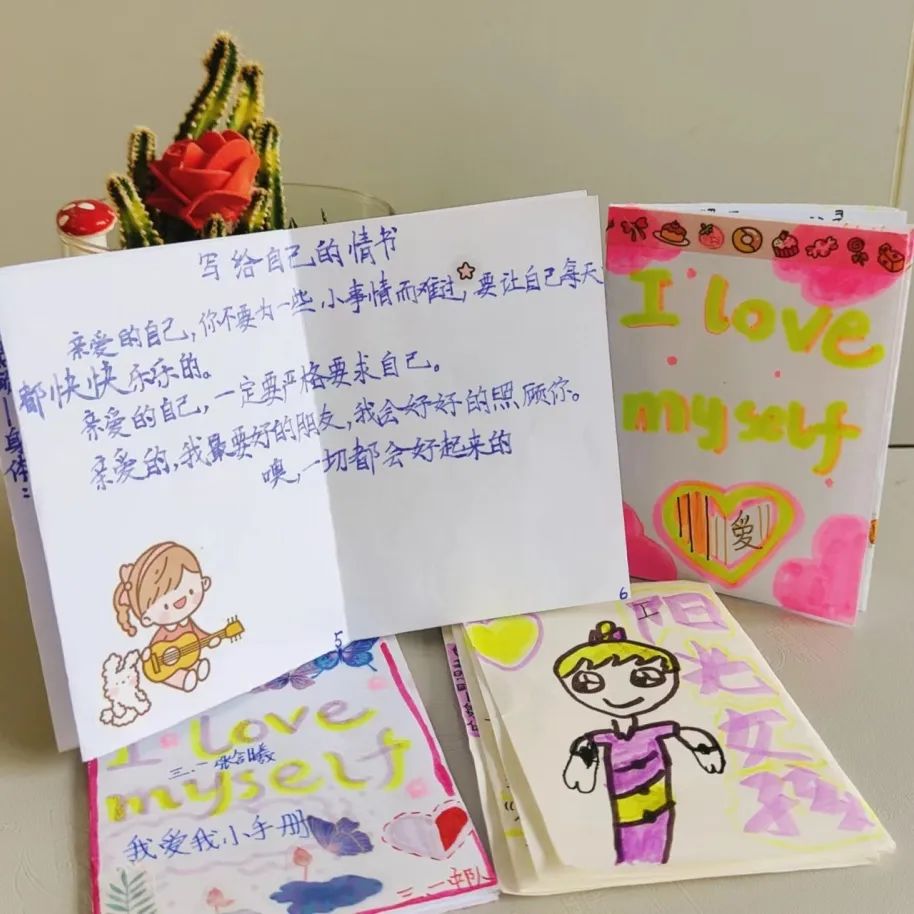 写给自己的情书
亲爱的自己，你不要为一些小事情而难过，要让自己每天
都快快乐乐的。
亲爱的自己，一定要严格要求自己。
亲爱的，我最要好的朋友，我会好好的照顾你。
噢，一切都会好起来的
5
6
I love
myself
爱
I love
myself
我爱我小手册
阳光女孩